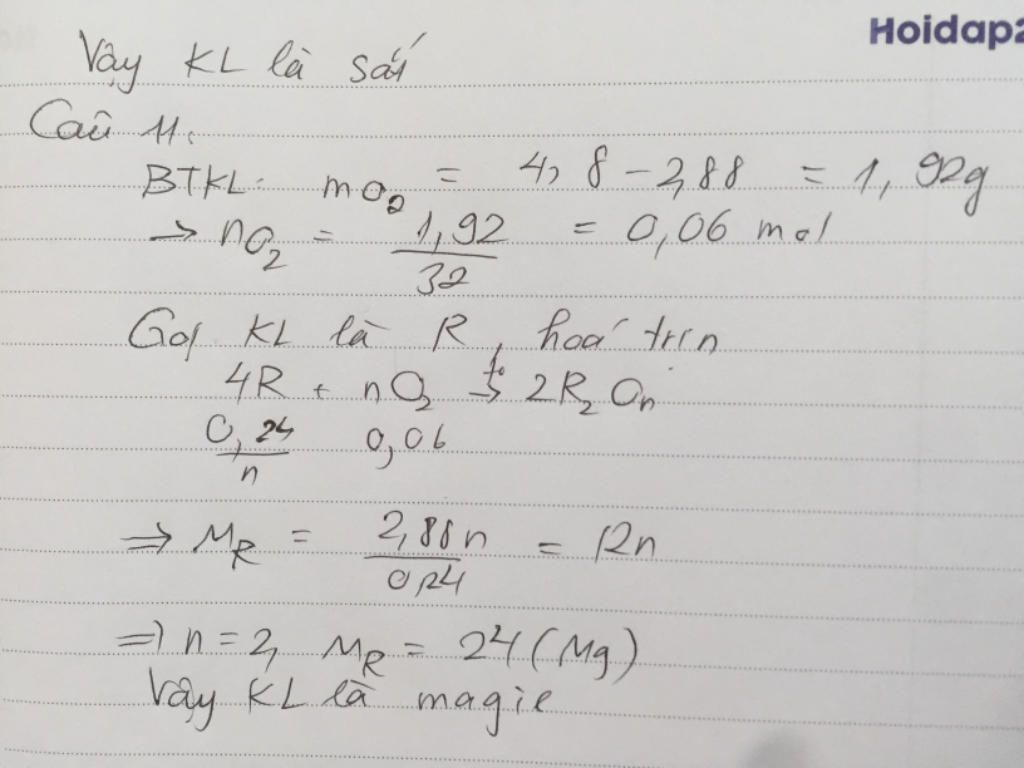 Hoidap2
Vậy KL là sắt
Câu 11.
BTKL: mO2 = 4,8 - 2,88 = 1,92g
→ nO2 = 1,92/32 = 0,06 mol
Gọi KL là R, hoá trị n
4R + nO2 t°→ 2R2On
0,24/n 0,06
=> MR = 2,88n/0,24 = 12n
=> n = 2, MR = 24 (Mg)
Vậy KL là magie